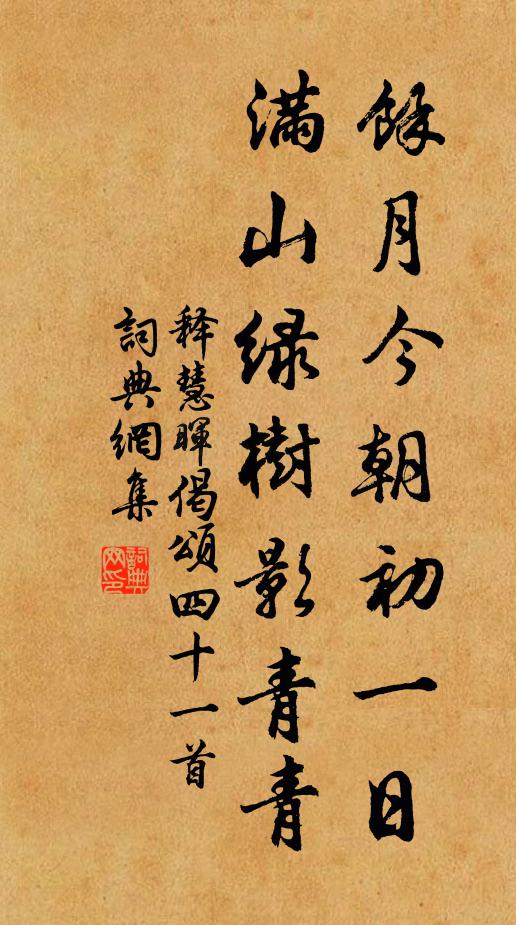 餘月今朝初一日
滿山緑樹影青青
释慧暉偈頌四十一首
詞典網集
詞典
网印